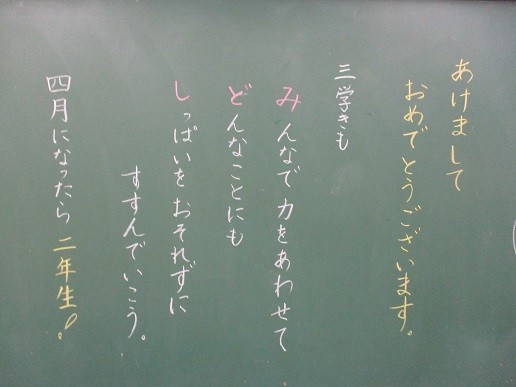 あけまして
おめでとうございます。
三学きも
みんなで力をあわせて
どんなことにも
しっぱいをおそれずに
すすんでいこう。
四月になったら二年生!